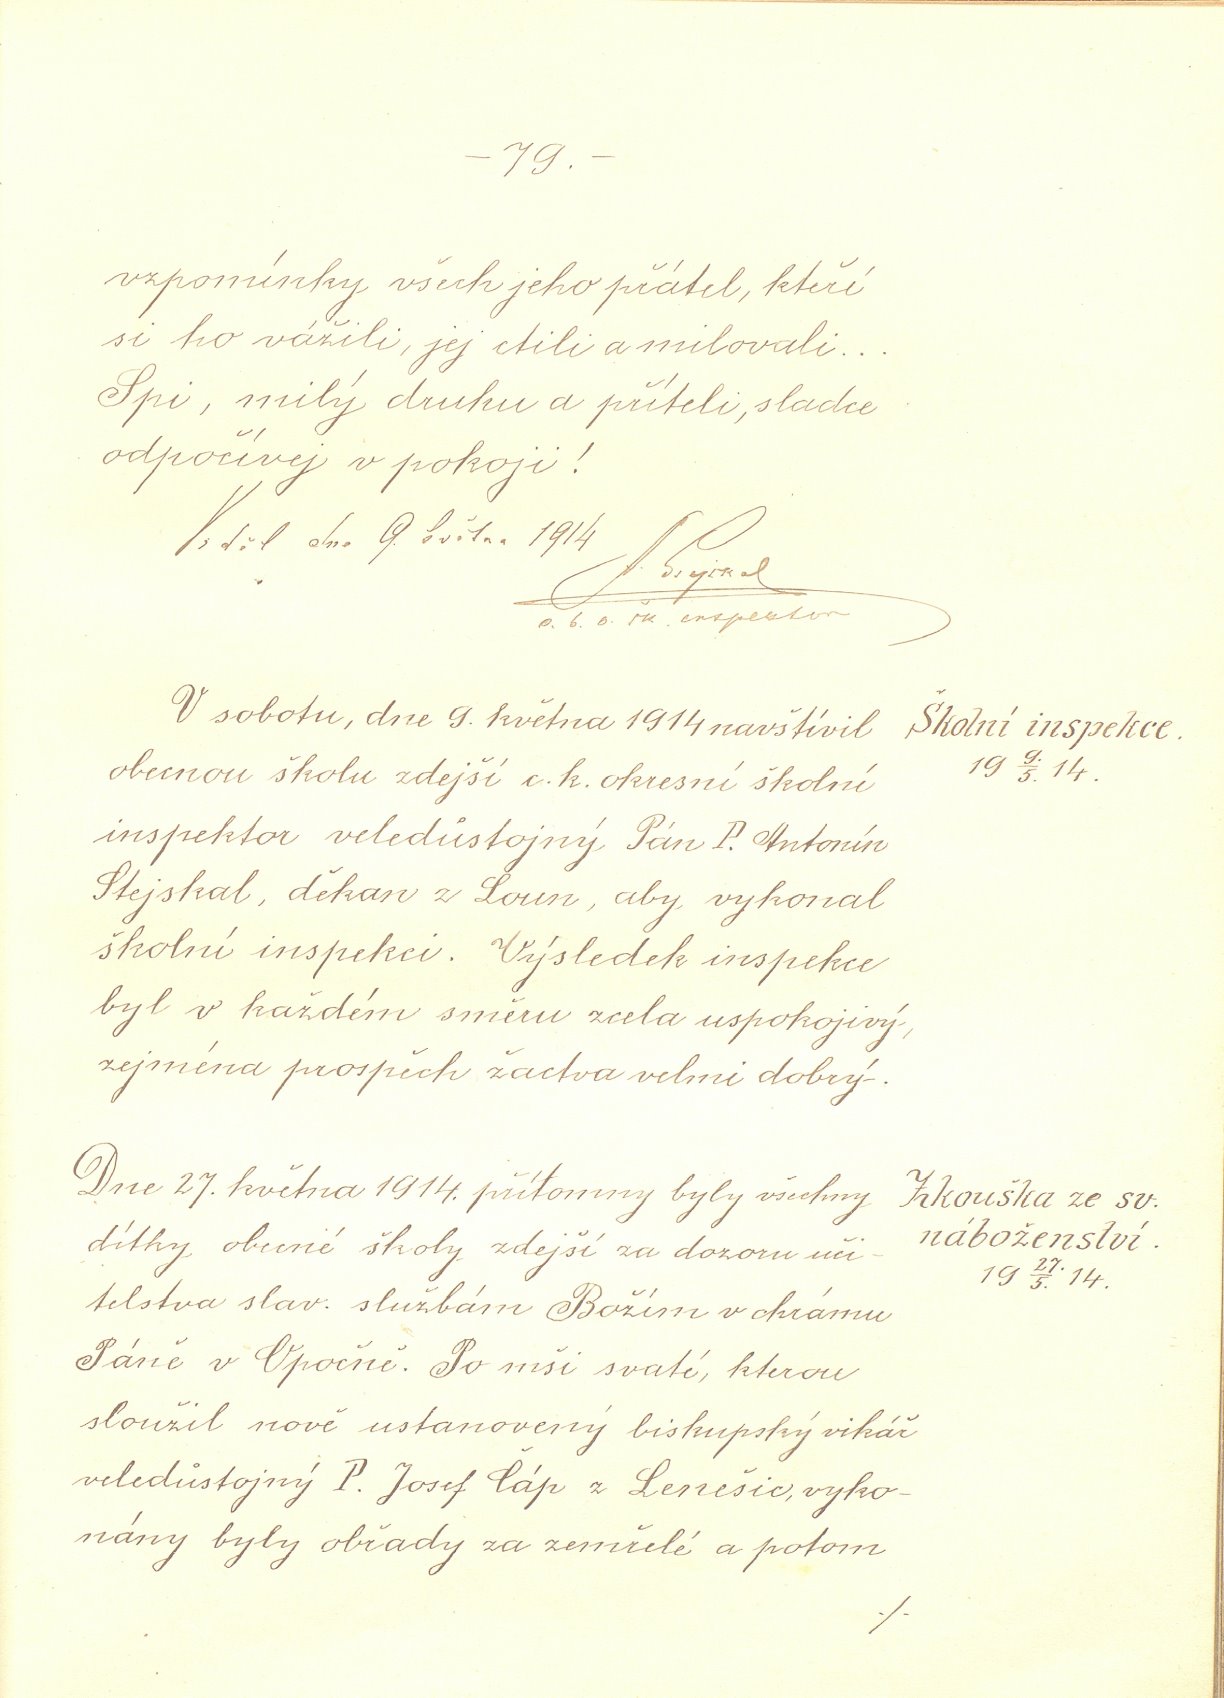 – 79. –
vzpomínky všech jeho přátel, kteří
si ho vážili, jej ctili a milovali...
Spi, milý druhu a příteli, sladce
odpočívej v pokoji!
Viděl dne 9. května 1914
Stejskal
c. k. o. šk. inspektor
V sobotu, dne 9. května 1914 navštívil
Školní inspekce.
19 9./5. 14.
obecnou školu zdejší c. k. okresní školní
inspektor veledůstojný Pán P. Antonín
Stejskal, děkan z Loun, aby vykonal
školní inspekci. Výsledek inspekce
byl v každém směru zcela uspokojivý,
zejména prospěch žactva velmi dobrý.
Dne 27. května 1914. přítomny byly všechny
Zkouška ze sv.
náboženství.
19 27./5. 14.
dítky obecné školy zdejší za dozoru uči-
telstva slav. službám Božím v chrámu
Páně v Opočně. Po mši svaté, kterou
sloužil nově ustanovený biskupský vikář
veledůstojný P. Josef Čáp z Lenešic, vyko-
nány byly obřady za zemřelé a potom
-/-